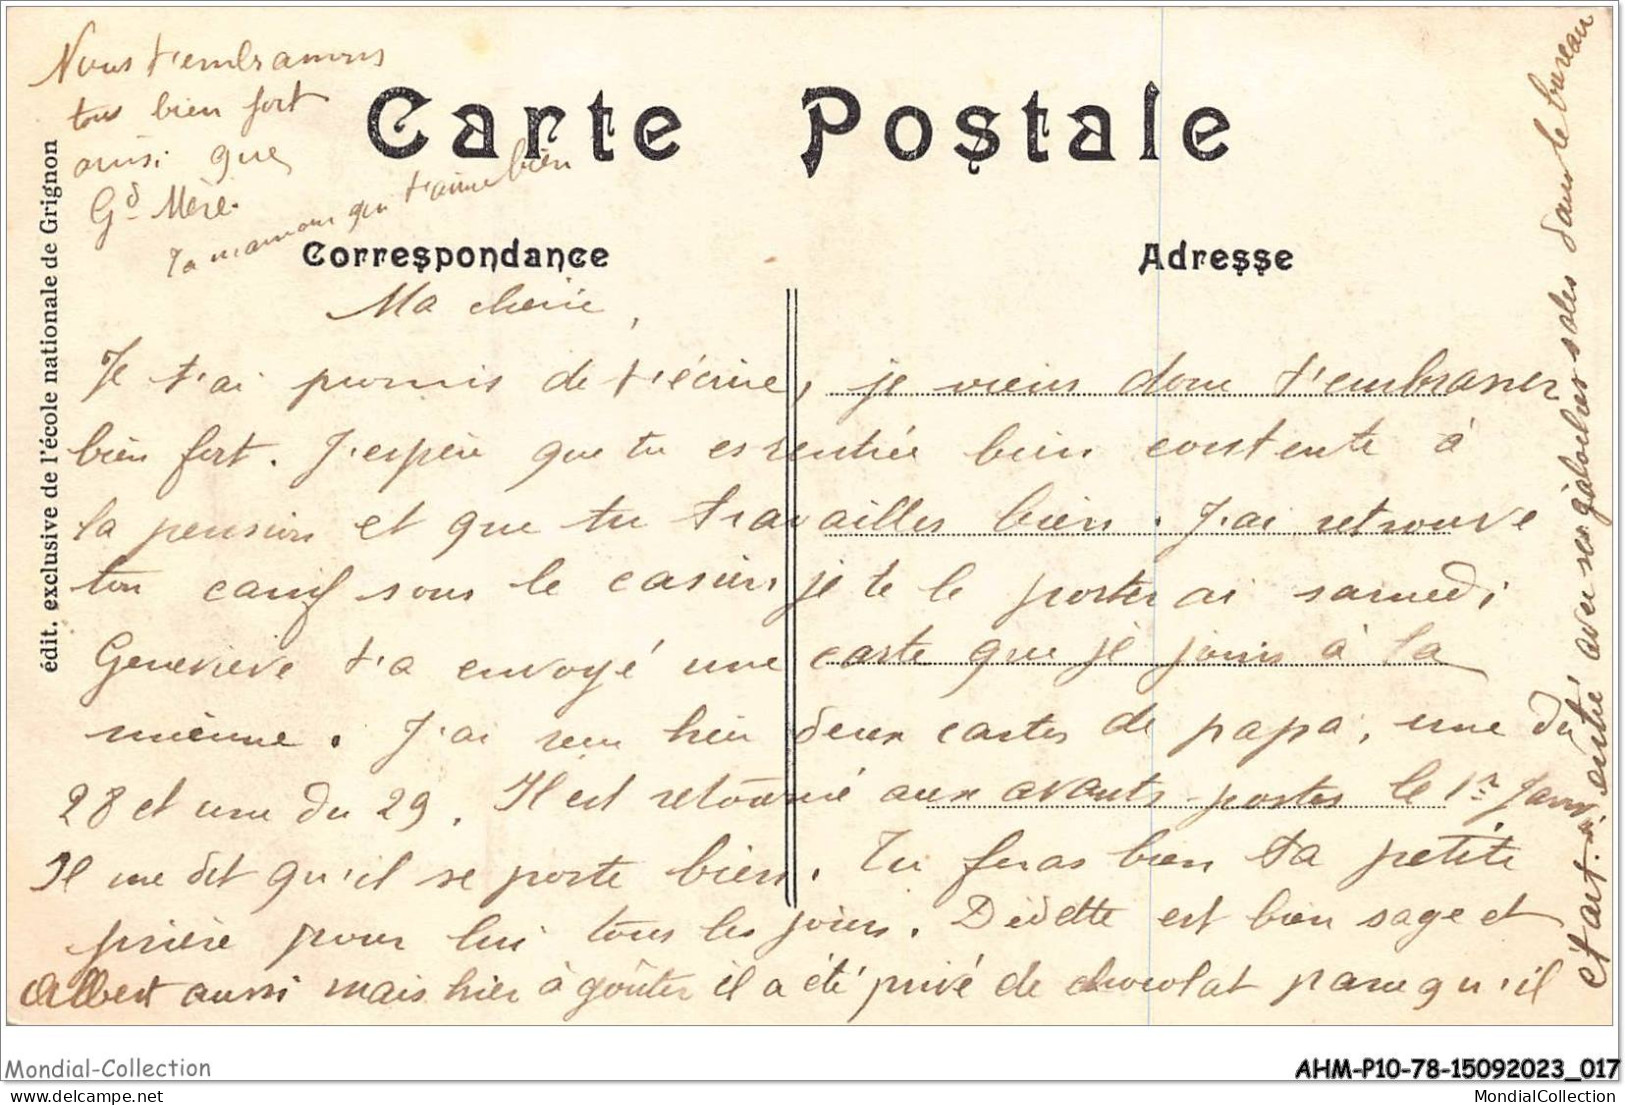 Carte Postale
Correspondance
Adresse
édit. exclusive de l'école nationale de Grignon
Ma cherie,
Je t'ai promis de t'écrire, je viens donc t'embrasser
bien fort. J'espère que tu es rentrée bien contente à
la pension et que tu travailles bien. J'ai retrouvé
ton canif sous le casier, je te le porterai samedi
Geneviève t'a envoyé une carte que je joins à la
mienne. J'ai reçu hier deux cartes de papa, une du
28 et une du 29. Il est retourné aux avants-postes le 1er Janv
Il me dit qu'il se porte bien. Tu feras bien ta petite
prière pour lui tous les jours. Dédette est bien sage et
Albert aussi mais hier à goûter il a été privé de chocolat parce qu'il
était rentré avec ses galoches sales dans le bureau
Nous t'embrassons
tous bien fort
ainsi que
Gd Mère.
Ta maman qui t'aime bien
Mondial-Collection
AHM-P10-78-15092023_017
delcampe.net
MondialCollection